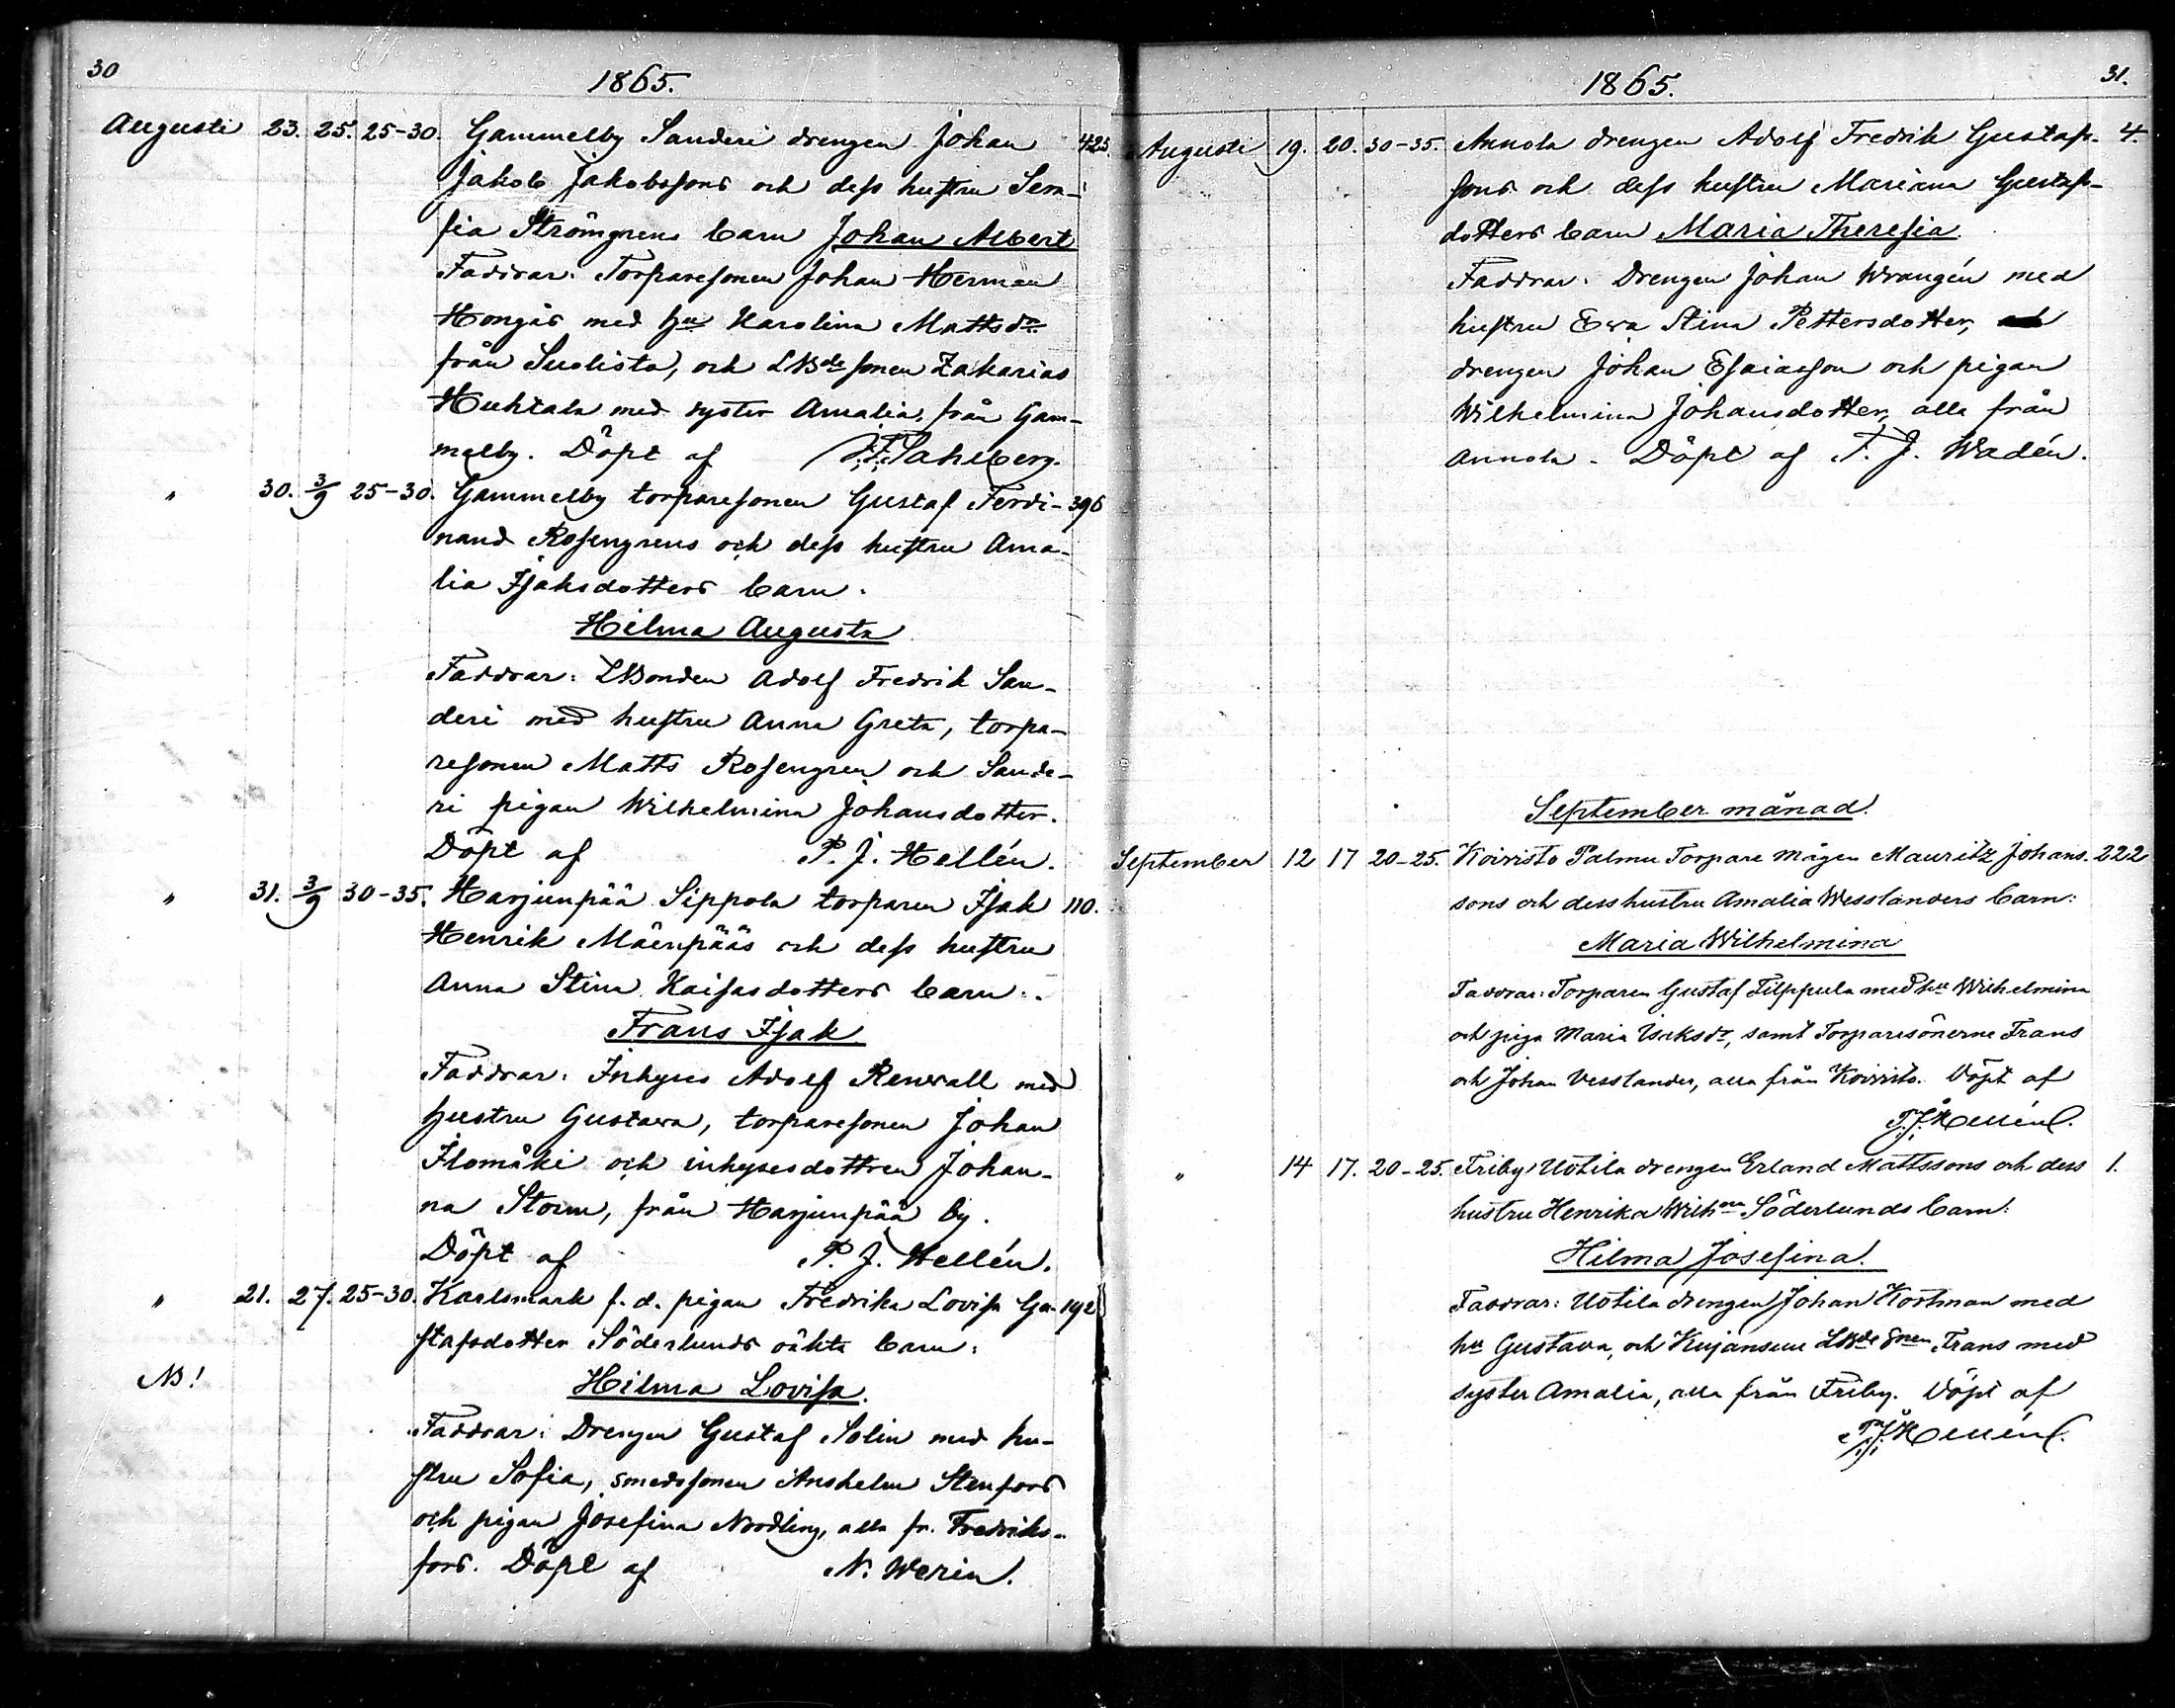 30
1865.
Augusti 23. 25. 25-30. Gammelby Sanderi drengen Johan 425.
Jakob Jakobssons och dess hustru Sem-
fia Strömgrens barn Johan Albert
Faddrar: Torparesonen Johan Herman
Hongås med hu Karolina Mattsdr
från Suolista, och LBde sonen Zakarias
Huhtala med syster Amalia, från Gam-
melby. Döpt af F. F. Sahlberg.
" 30. 3/9 25-30. Gammelby torparesonen Gustaf Ferdi- 396
nand Rosengrens och dess hustru Ama-
lia Isaksdotters barn.
Hilma Augusta
Faddrar: LBonden Adolf Fredrik San-
deri med hustru Anna Greta, torpa-
resonen Matts Rosengren och Sande-
ri pigan Wilhelmina Johansdotter.
Döpt af P. J. Hellén.
" 31. 3/9 30-35. Harjunpää Sippola torparen Isak 110.
Henrik Mäenpääs och dess hustru
Anna Stina Kaisasdotters barn.
Frans Isak
Faddrar: Inhyses Adolf Renvall med
hustru Gustava, torparesonen Johan
Ilomäki och inhysesdottren Johan-
na Storm, från Harjunpää by.
Döpt af P. J. Hellén.
" 21. 27. 25-30. Karlsmark f. d. pigan Fredrika Lovisa Gu- 192
stafsdotter Söderlunds oäkta barn:
NB! Hilma Lovisa.
Faddrar: Drengen Gustaf Solin med hu-
stru Sofia, smedssonen Anshelm Stenfors
och pigan Josefina Nordling, alla fr. Fredriks-
fors. Döpt af N. Werin.
31.
1865.
Augusti 19. 20. 30-35. Annola drengen Adolf Fredrik Gustafs- 4.
sons och dess hustru Mariana Gustafs-
dotters barn Maria Theresia.
Faddrar: Drengen Johan Wrangén med
hustru Ewa Stina Pettersdotter,
drengen Johan Esaiasson och pigan
Wilhelmina Johansdotter, alla från
Annola. Döpt af F. J. Wadén.
September månad.
September 12 17 20-25. Koivisto Palmu Torpare mågen Mauritz Johans- 222
sons och dess hustru Amalia Wesslanders barn:
Maria Wilhelmina
Faddrar: Torparen Gustaf Filppula med hu Wilhelmina
och piga Maria Isaksdr, samt Torparesönerne Frans
och Johan Vesslander, alla från Koivisto. Döpt af
P. J. Hellén.
" 14 17. 20-25. Friby Uotila drengen Erland Mattssons och dess 1.
hustru Henrika Wilhna Söderlunds barn:
Hilma Josefina.
Faddrar: Uotila drengen Johan Kortman med
hu Gustava, och Kujansuu LBde Snen Frans med
syster Amalia, alla från Friby. Döpt af
P. J. Hellén.